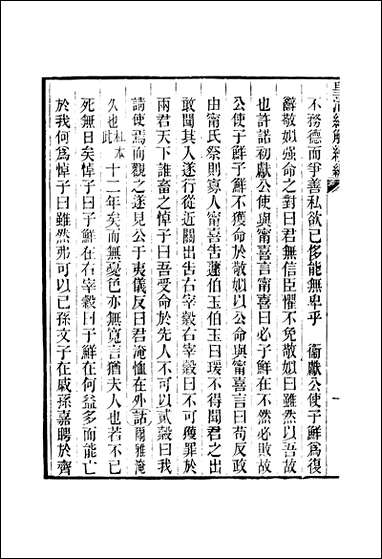 皇清經解續編
不務德而爭善私欲已侈能無卑乎　衞獻公使子鮮爲復
辭敬姒强命之對曰君無信臣懼不免敬姒曰雖然以吾故
也許諾初獻公使與甯喜言甯喜曰必子鮮在不然必敗故
公使子鮮子鮮不獲命於敬姒以公命與甯喜言曰苟反政
由甯氏祭則寡人甯喜告蘧伯玉伯玉曰瑗不得聞君之出
敢聞其入遂行從近關出告右宰穀右宰穀曰不可獲罪於
兩君天下誰畜之悼子曰吾受命於先人不可以貳穀曰我
請使焉而觀之遂見公于夷儀反曰君淹恤在外詁爾雅淹
久也杜本此十二年矣而無憂色亦無寬言猶夫人也若不已
死無日矣悼子曰子鮮在右宰穀曰子鮮在何益多而能亡
於我何爲悼子曰雖然弗可以已孫文子在戚孫嘉聘於齊